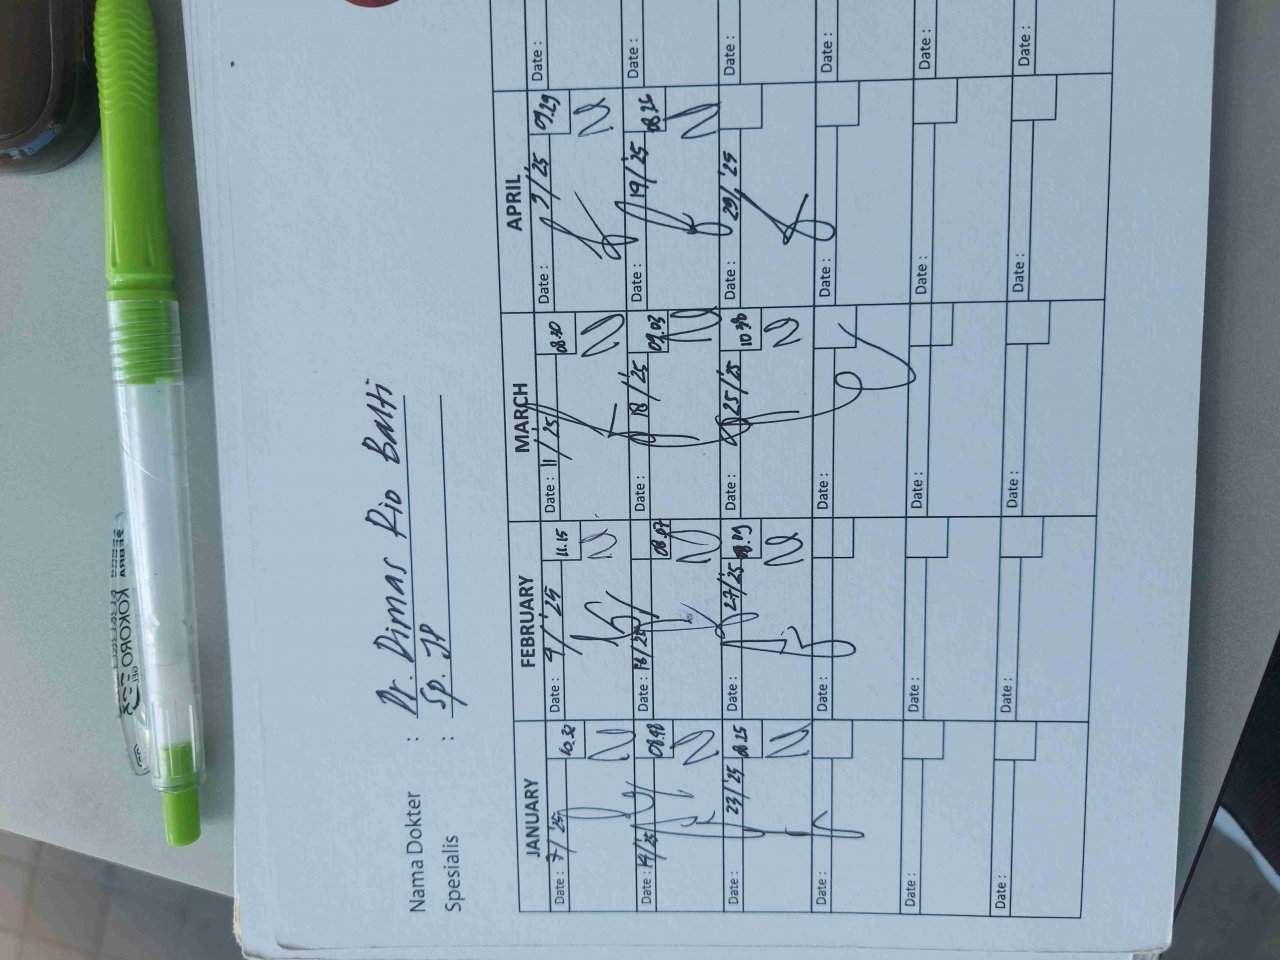 Nama Dokter : Dr. Dimas Rio Balti
Spesialis : Sp. JP
JANUARY FEBRUARY MARCH APRIL
Date : 7/'25 10.32 Date : 4/'25 11.15 Date : 11/'25 08.30 Date : 7/'25 09.29 Date :
Date : 14/'25 08.48 Date : 18/'25 08.07 Date : 18/'25 09.03 Date : 19/'25 08.26 Date :
Date : 23/'25 08.25 Date : 27/'25 08.09 Date : 25/'25 Date : 29/'25 Date :
Date : Date : Date : Date : Date :
Date : Date : Date : Date : Date :
Date : Date : Date : Date : Date :
KOKORO
GEL